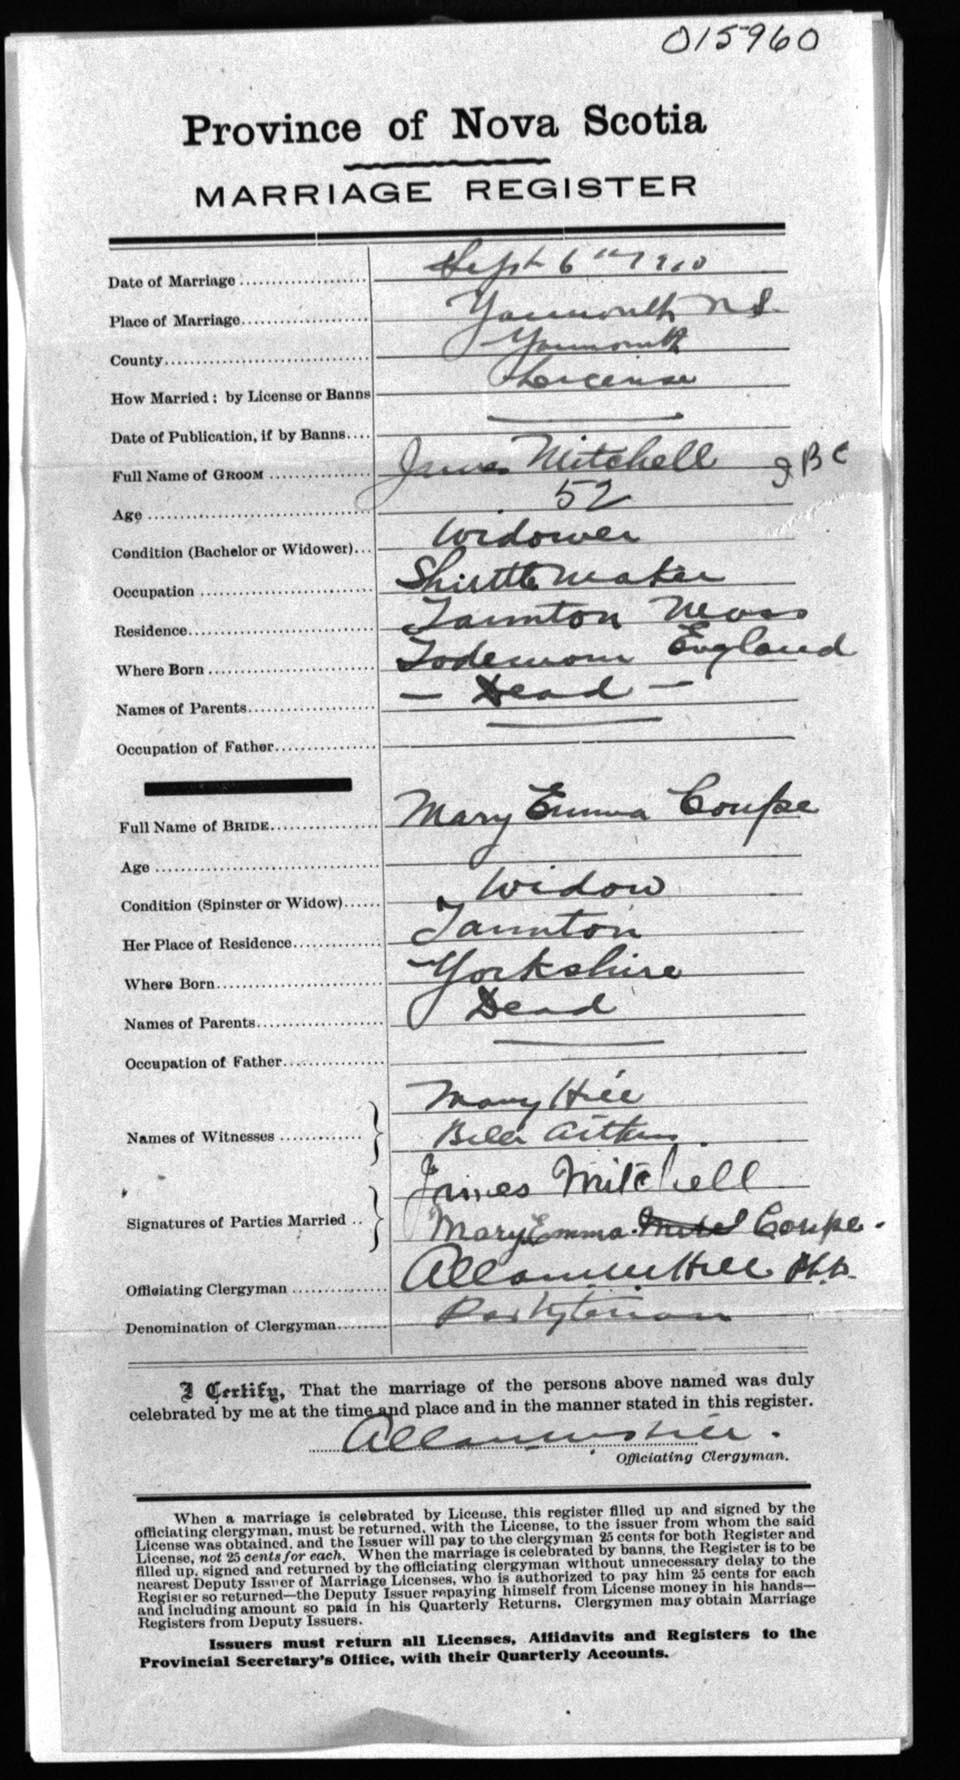 015960
Province of Nova Scotia
MARRIAGE REGISTER
Date of Marriage Sept 6th 1910
Place of Marriage Yarmouth N S.
County Yarmouth
How Married: by License or Banns License
Date of Publication, if by Banns
Full Name of GROOM James Mitchell
Age 52
Condition (Bachelor or Widower) Widower
Occupation Maker
Residence Taunton Mass
Where Born England
Names of Parents — Dead —
Occupation of Father
Full Name of BRIDE Mary Emma Coupe
Age
Condition (Spinster or Widow) Widow
Her Place of Residence Taunton
Where Born Yorkshire
Names of Parents Dead
Occupation of Father
Names of Witnesses Mary Hill
Bella Aitken.
Signatures of Parties Married James Mitchell
Mary Emma Coupe.
Officiating Clergyman Hill Ph.D.
Denomination of Clergyman Presbyterian
I Certify, That the marriage of the persons above named was duly
celebrated by me at the time and place and in the manner stated in this register.
Hill.
Officiating Clergyman.
When a marriage is celebrated by License, this register filled up and signed by the
officiating clergyman, must be returned, with the License, to the issuer from whom the said
License was obtained, and the Issuer will pay to the clergyman 25 cents for both Register and
License, not 25 cents for each. When the marriage is celebrated by banns, the Register is to be
filled up, signed and returned by the officiating clergyman without unnecessary delay to the
nearest Deputy Issuer of Marriage Licenses, who is authorized to pay him 25 cents for each
Register so returned—the Deputy Issuer repaying himself from License money in his hands—
and including amount so paid in his Quarterly Returns. Clergymen may obtain Marriage
Registers from Deputy Issuers.
Issuers must return all Licenses, Affidavits and Registers to the
Provincial Secretary's Office, with their Quarterly Accounts.